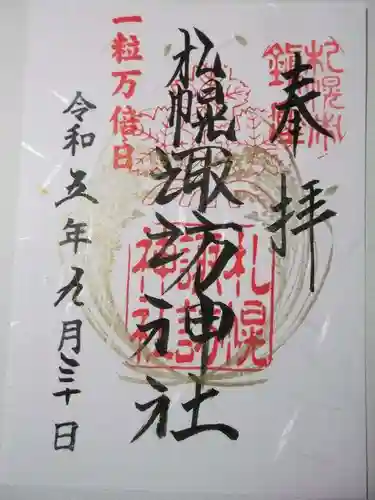 奉拝
札幌市
鎮座
札幌諏訪神社
札幌
諏訪
神社
一粒万倍日
令和五年九月三十日